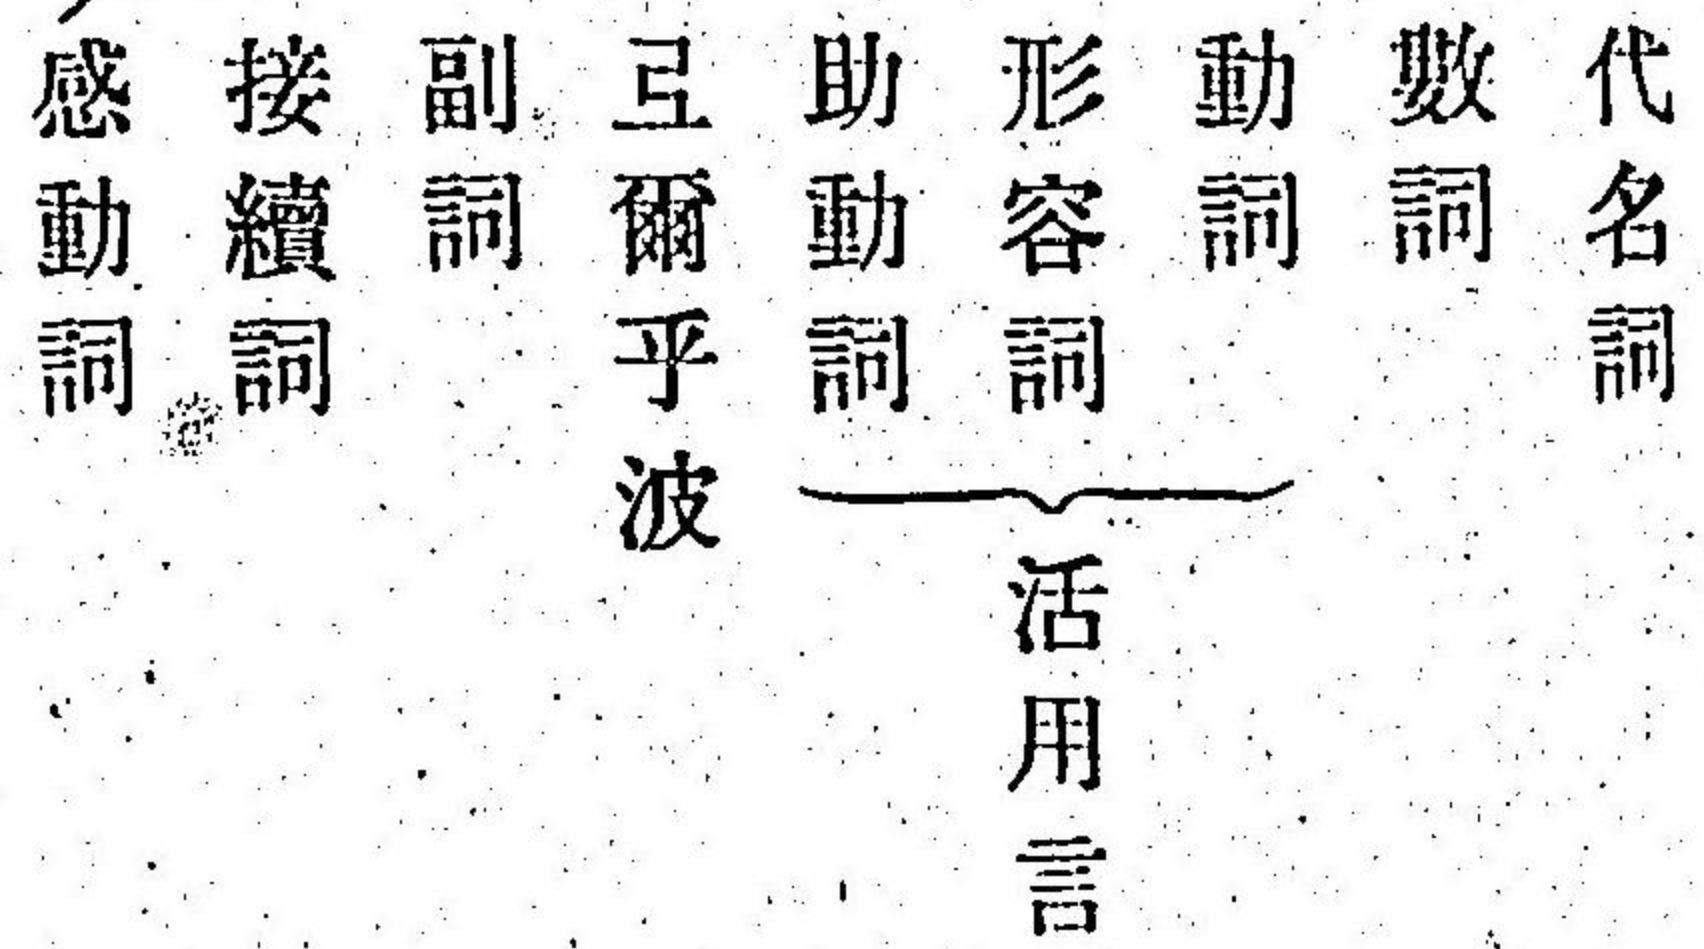 代名詞
數詞
動詞
形容詞
助動詞
活用言
弖爾乎波
副詞
接續詞
感動詞